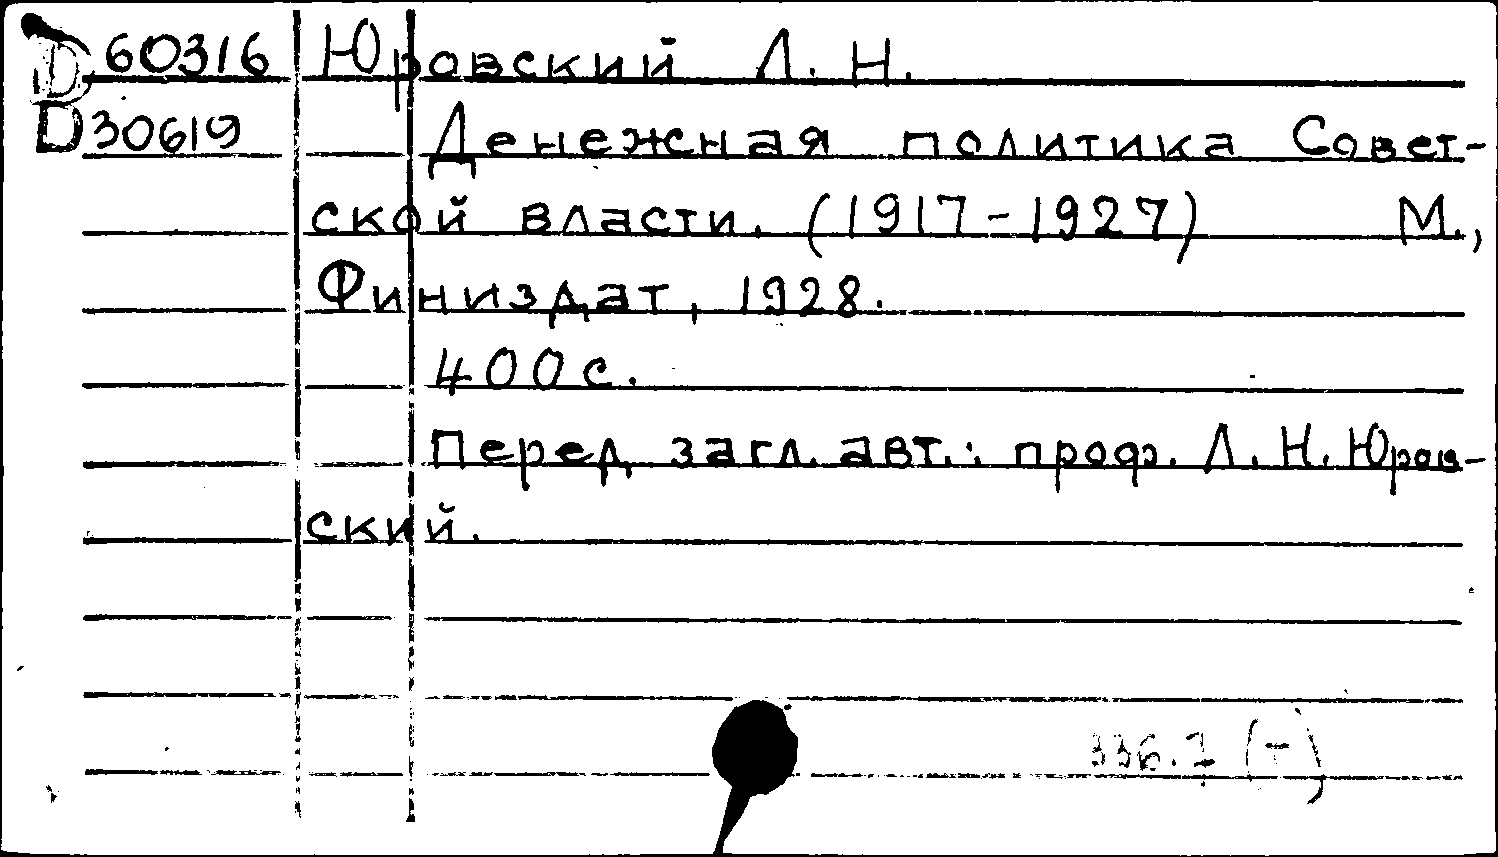 D 60316 Юровский Л. Н.
D 30619 Денежная политика Совет-
ской власти. (1917-1927) М.,
Финиздат, 1928.
400 с.
Перед загл. авт.: проф. Л. Н. Юров-
ский.
336.7 (-)